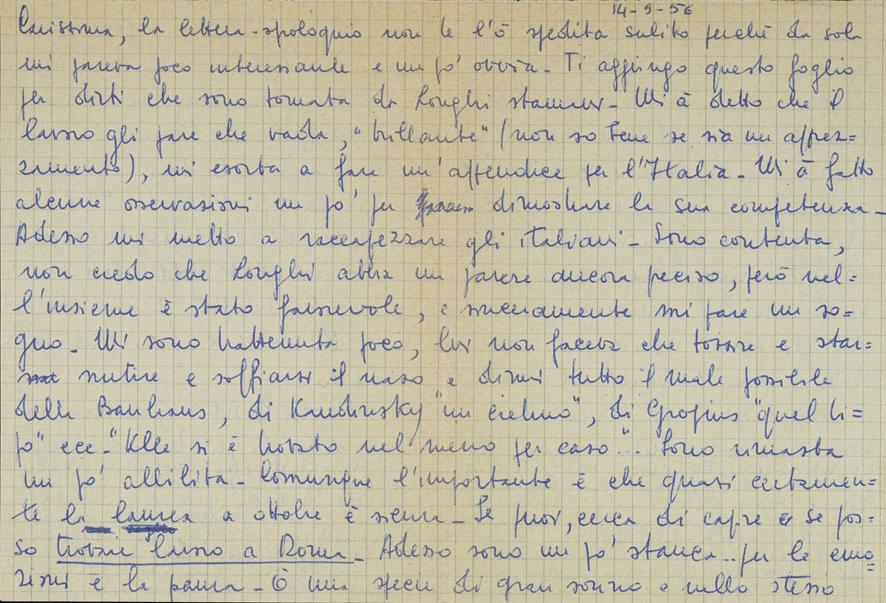 14-9-56
Carissima, la lettera-apologuio non te l'ò spedita subito perché da sola
mi pareva poco interessante e un po' ovvia - Ti aggiungo questo foglio
per dirti che sono tornata da Longhi stamane - Mi à detto che il
lavoro gli pare che vada, "brillante" (non so bene se sia un apprez=
zamento), mi esorta a fare un'appendice per l'Italia - Mi à fatto
alcune osservazioni un po' per dimostrare la sua competenza -
Adesso mi metto a raccapezzare gli italiani - Sono contenta,
non credo che Longhi abbia un parere ancora preciso, però nel=
l'insieme è stato favorevole, e sinceramente mi pare un so=
gno - Mi sono trattenuta poco, lui non faceva che tossire e star=
nutire e soffiarsi il naso e dirmi tutto il male possibile
della Bauhaus, di Kandinsky "un cretino", di Gropius "quel ti=
po" ecc - "Klee si è trovato nel meno per caso".. Sono rimasta
un po' allibita - Comunque l'importante è che quasi certamen=
te la laurea a ottobre è sicura - Se puoi, cerca di capire se pos=
so trovare lavoro a Roma - Adesso sono un po' stanca.. per le emo=
zioni e la paura - Ò una specie di gran sonno e nello stesso